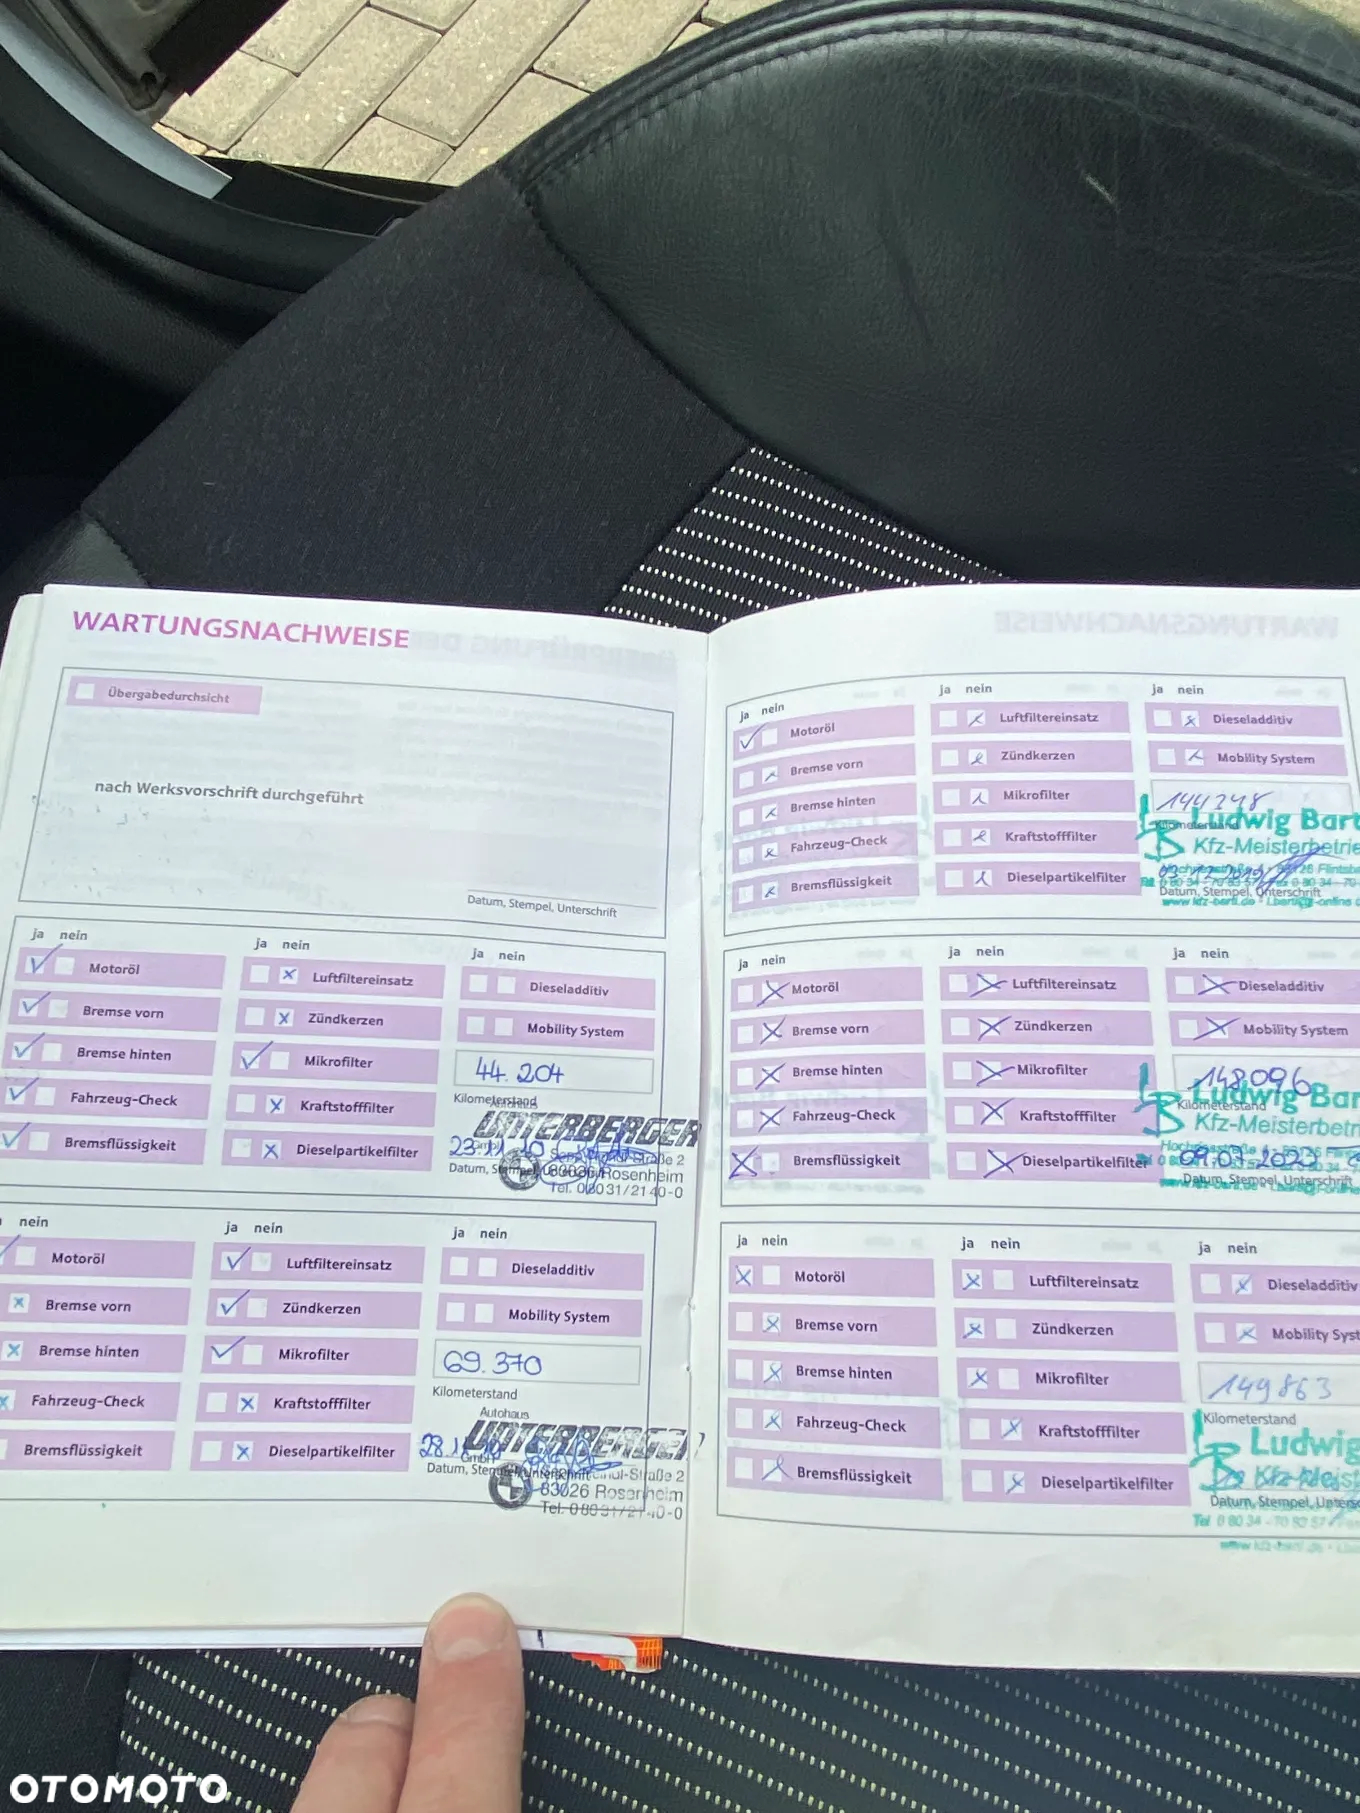 WARTUNGSNACHWEISE
Übergabedurchsicht
nach Werksvorschrift durchgeführt
Datum, Stempel, Unterschrift
ja nein
Motoröl
Bremse vorn
Bremse hinten
Fahrzeug-Check
Bremsflüssigkeit
ja nein
Luftfiltereinsatz
Zündkerzen
Mikrofilter
Kraftstofffilter
Dieselpartikelfilter
ja nein
Dieseladditiv
Mobility System
44.204
Kilometerstand
UNTERBERGER
GmbH
Straße 2
Datum, Stempel
83026 Rosenheim
Tel. 08031/2140-0
nein
Motoröl
Bremse vorn
Bremse hinten
Fahrzeug-Check
Bremsflüssigkeit
ja nein
Luftfiltereinsatz
Zündkerzen
Mikrofilter
Kraftstofffilter
Dieselpartikelfilter
ja nein
Dieseladditiv
Mobility System
69.370
Kilometerstand
Autohaus
UNTERBERGER
GmbH
Datum, Stempel, Unterschrift
-Straße 2
83026 Rosenheim
Tel. 08031/2140-0
WARTUNGSNACHWEISE
ja nein
Motoröl
Bremse vorn
Bremse hinten
Fahrzeug-Check
Bremsflüssigkeit
ja nein
Luftfiltereinsatz
Zündkerzen
Mikrofilter
Kraftstofffilter
Dieselpartikelfilter
ja nein
Dieseladditiv
Mobility System
Kilometerstand
Ludwig Bart
Kfz-Meisterbetrie
Datum, Stempel, Unterschrift
ja nein
Motoröl
Bremse vorn
Bremse hinten
Fahrzeug-Check
Bremsflüssigkeit
ja nein
Luftfiltereinsatz
Zündkerzen
Mikrofilter
Kraftstofffilter
Dieselpartikelfilter
ja nein
Dieseladditiv
Mobility System
148096
Kilometerstand
Ludwig Bar
Kfz-Meisterbetri
09.07.2023
Datum, Stempel, Unterschrift
ja nein
Motoröl
Bremse vorn
Bremse hinten
Fahrzeug-Check
Bremsflüssigkeit
ja nein
Luftfiltereinsatz
Zündkerzen
Mikrofilter
Kraftstofffilter
Dieselpartikelfilter
ja nein
Dieseladditiv
Mobility Syst
149863
Kilometerstand
Ludwig
Kfz-Meist
Datum, Stempel, Untersc
OTOMOTO